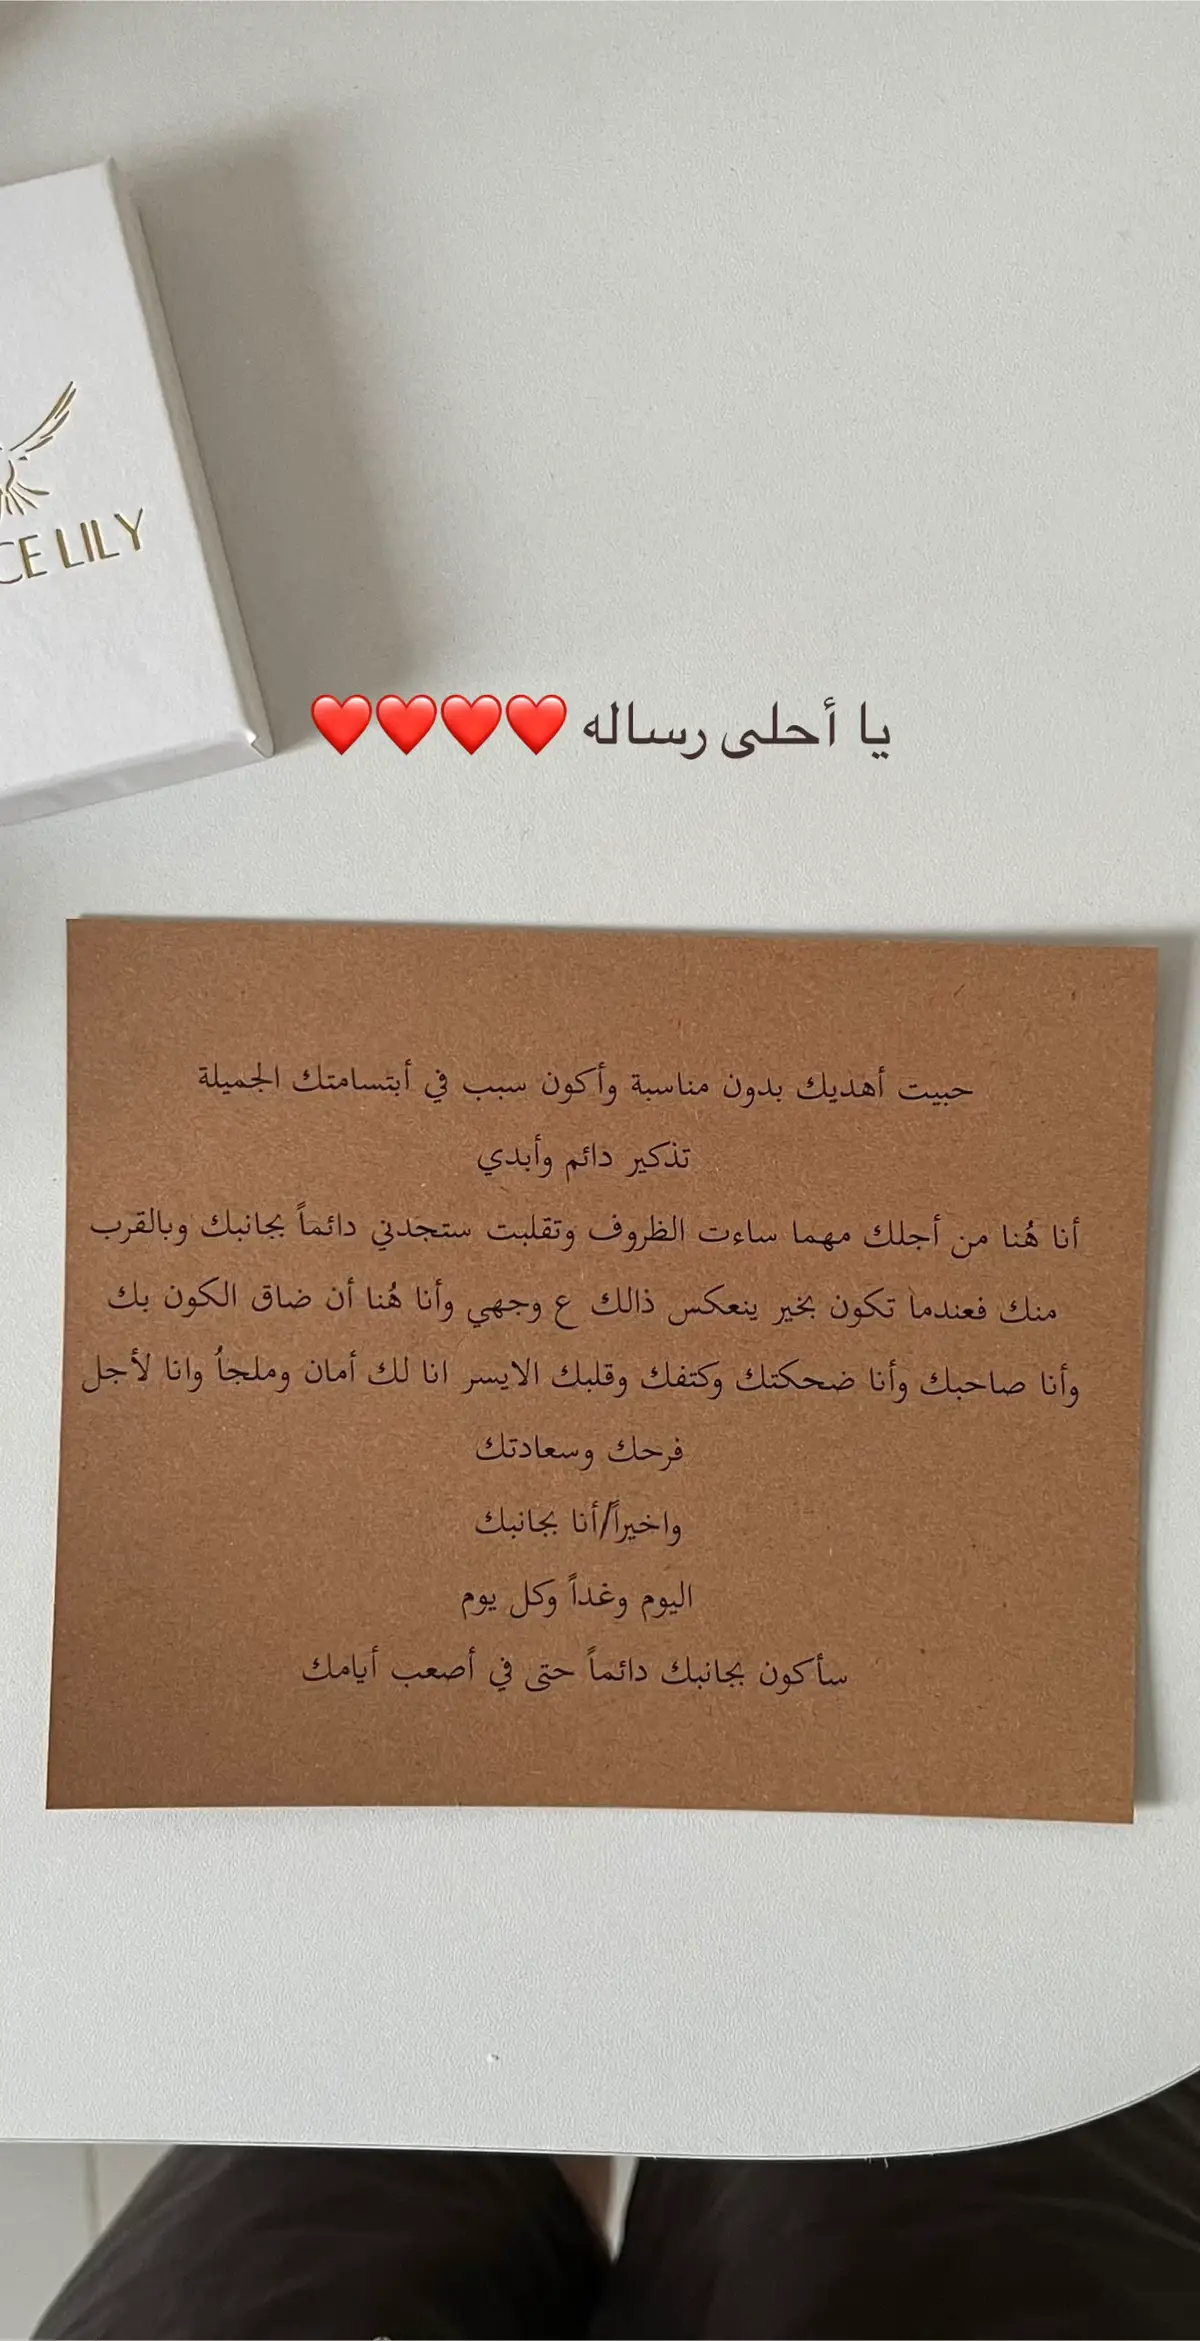 CE LILY
يا أحلى رساله ❤️❤️❤️❤️
حبيت أهديك بدون مناسبة وأكون سبب في أبتسامتك الجميلة
تذكير دائم وأبدي
أنا هُنا من أجلك مهما ساءت الظروف وتقلبت ستجدني دائماً بجانبك وبالقرب
منك فعندما تكون بخير ينعكس ذالك ع وجهي وأنا هُنا أن ضاق الكون بك
وأنا صاحبك وأنا ضحكتك وكتفك وقلبك الايسر انا لك أمان وملجأُ وانا لأجل
فرحك وسعادتك
واخيراً/أنا بجانبك
اليوم وغداً وكل يوم
سأكون بجانبك دائماً حتى في أصعب أيامك